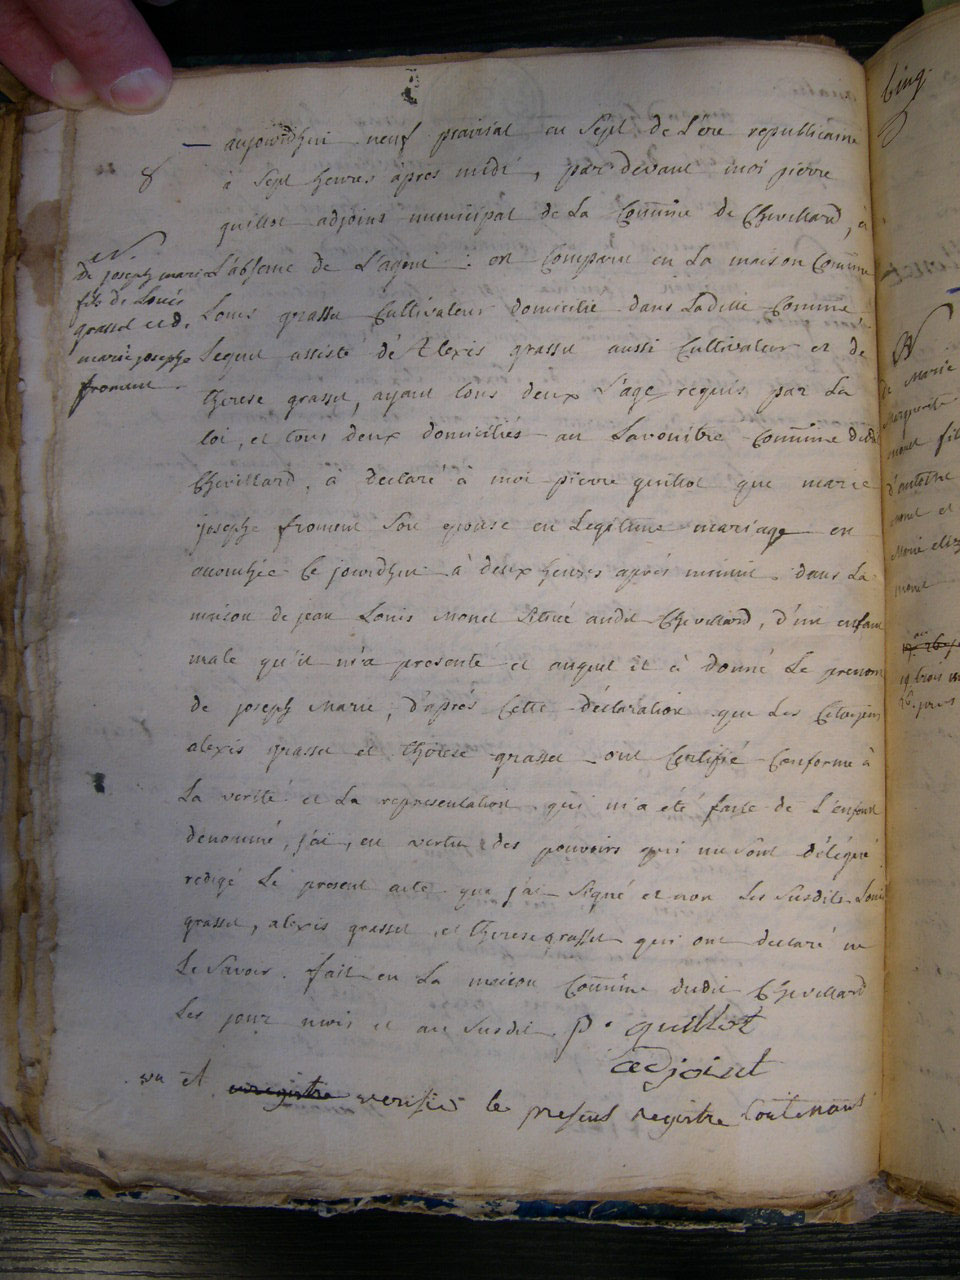 8
aujourdhui neuf prairial en Sept de L'ere republicaine
à Sept heures après midi, par devant moi pierre
quillot adjoint municipal de La Comune de Chevillard, à
L'absence de L'agent : est Comparu en La maison Comune
Louis grasset Cultivateur domicilié dans Laditte Comune
Lequel assisté de Alexis grasset aussi Cultivateur et de
therese grasset, ayant tous deux L'age requis par La
loi, et tous deux domiciliés au Comune dudit
Chevillard, à declaré à moi pierre quillot que marie
josephe froment Son epouse en Legitime mariage est
accouchée Ce jourdhui à deux heures après minuit dans La
maison de jean Louis Monet Situé audit Chevillard, d'un enfant
male qu'il m'a presenté et auquel il à donné Le prenom
de joseph Marie, d'après Cette déclaration que Les Citoyens
alexis grasset et therese grasset ont Certifié Conforme à
La verité et La representation qui m'a été faite de L'enfant
denommé, j'ai, en vertu des pouvoirs qui me sont délégué
redigé Le present acte que j'ai Signé et non Les Susdits Louis
grasset, alexis grasset et therese grasset qui ont declaré ne
Le Savoir. fait en La maison Comune dudit Chevillard
Les jour mois et an Susdit. p. quillot
adjoint
vu et enregistre verifié le present registre Contenant
N
de joseph marie
fils de Louis
grasset et de
marie josephe
froment
Cinq
N
de Marie
Marguerite
monet fil
d'antoine
monet et
Marie eliz
monet